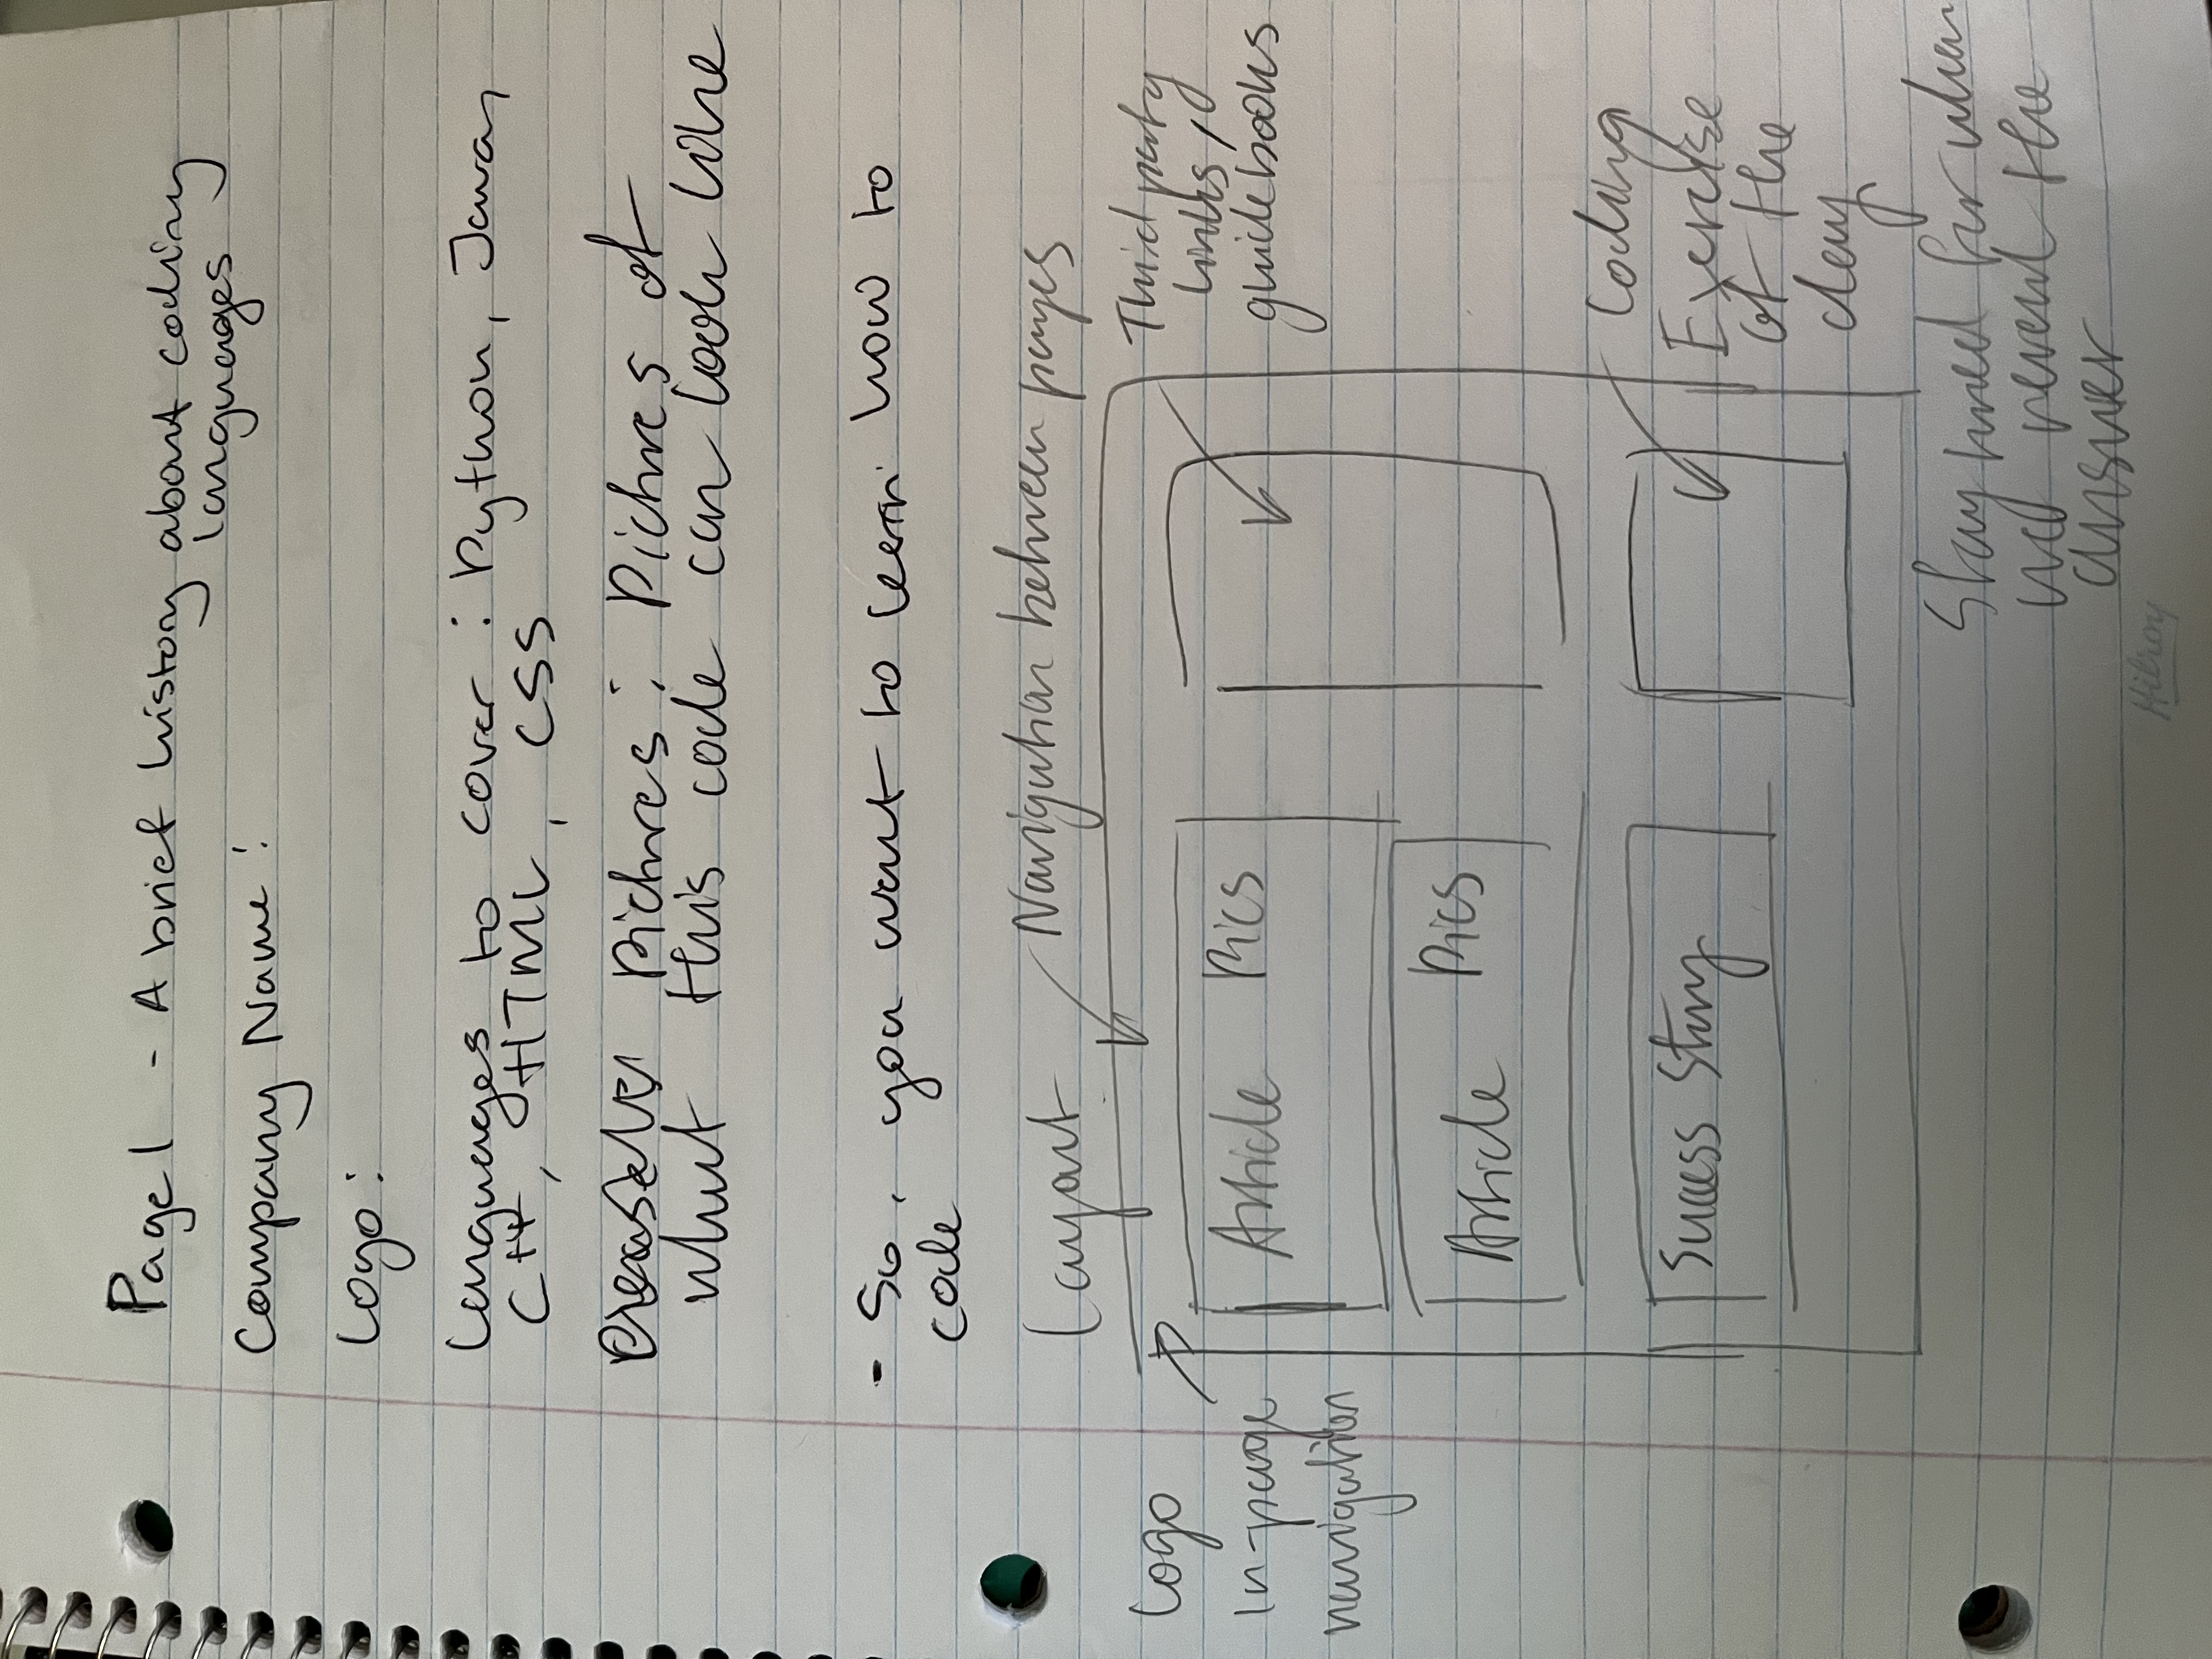 Page 1 - A brief history about coding
languages
Company Name:
Logo:
Languages to cover: Python, Java,
C++, HTML, CSS
Pictures: Pictures of
what this code can look like
- So, you want to learn how to
code
Layout
Navigation between pages
Logo
in-page
navigation
Article Pics
Third party
links,
guidebooks
Article Pics
Success Story
Coding
Exercise
of the
day
Stay tuned for when
we reveal the
answer
Hilroy